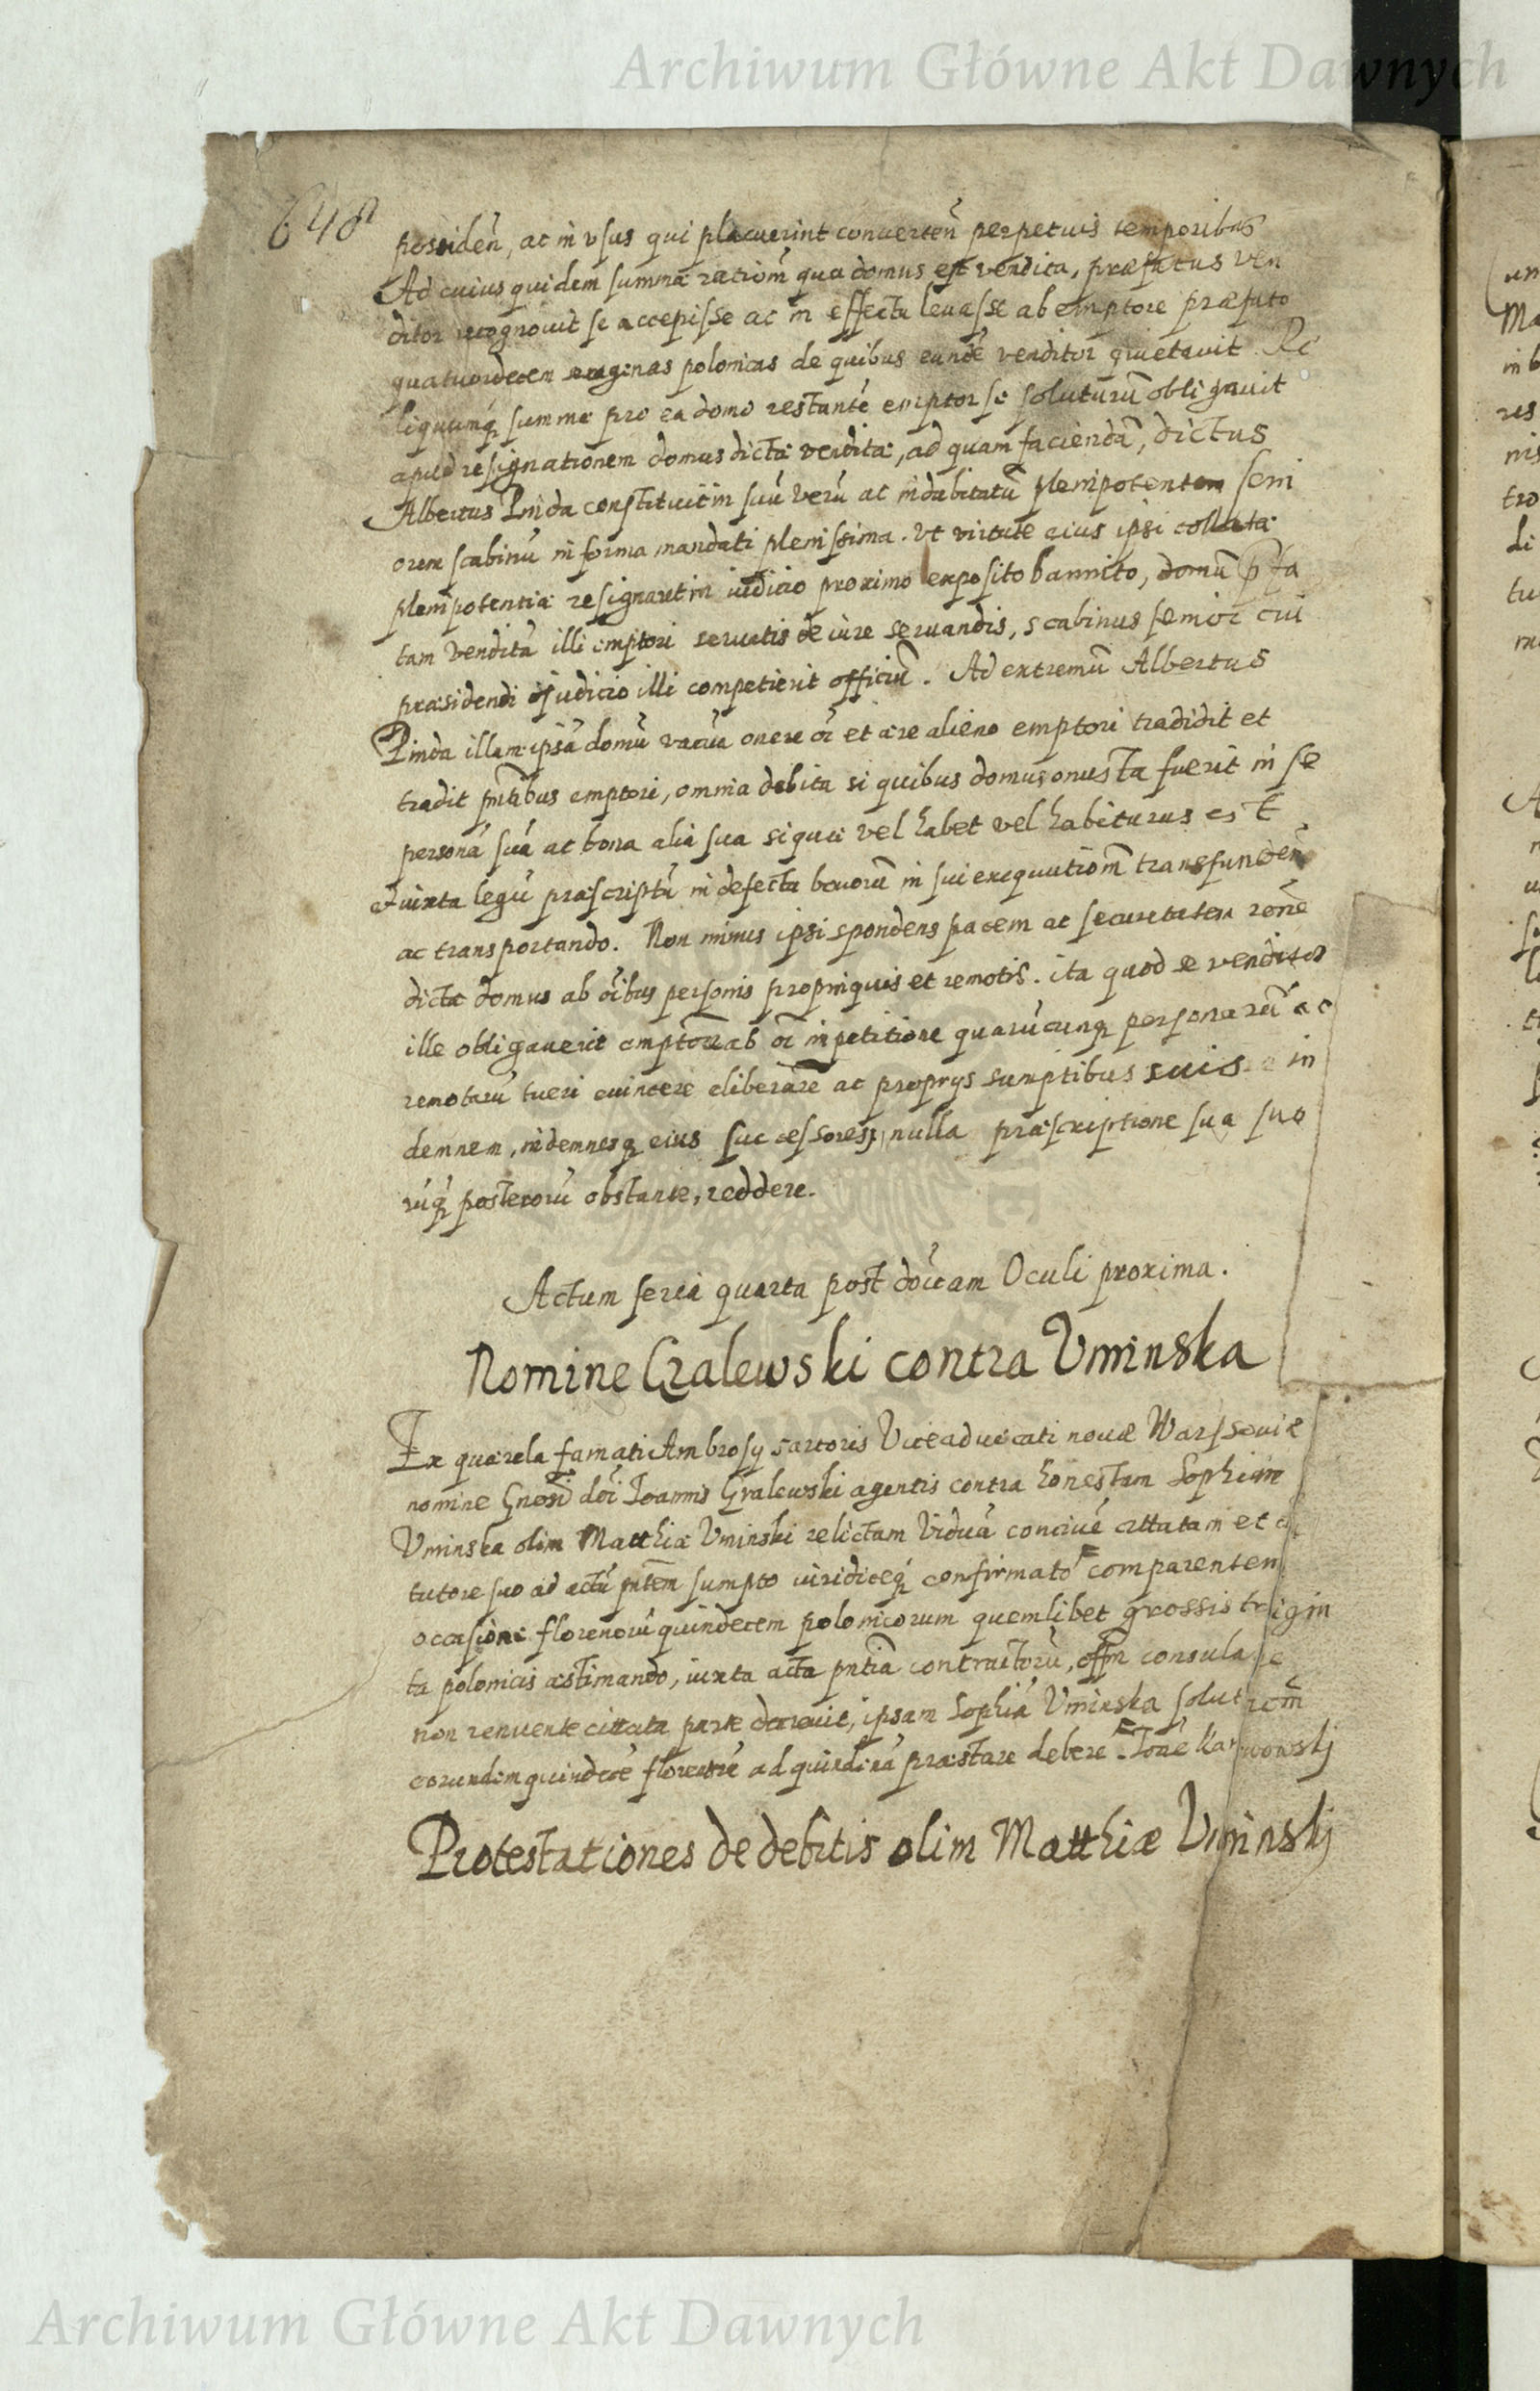 Archiwum Główne Akt Dawnych
648
possideñ, ac in usus qui placuerint conuerteñ perpetuis temporibus
Ad cuius quidem summæ ratioñ qua domus est vendita, præfatus ven
ditor recognouit se accepisse ac in effectu leuasse ab emptore præfato
quatuordecem sexagenas polonicas de quibus eundē venditor quietauit. Re
liquumq; summæ pro ea domo restantē emptor se soluturū obligauit
apud resignationem domus dictæ venditæ, ad quam faciendā, dictus
Albertus Pinda constituit in suū verū ac indubitatū plenipotentem seni
orem scabinū in forma mandati plenissima. Vt virtute eius ipsi collatæ
plenipotentiæ resignaret in iudicio proximo exposito bannito, domū præfa
tam venditā illi emptori seruatis de iure seruandis, scabinus senior cui
præsidendi iudicio illi competierit officiū. Ad extremū Albertus
Pinda illam ipsā domū vacuā onere oī et ære alieno emptori tradidit et
tradit pñtibus emptori, omnia debita si quibus domus onusta fuerit in se
personā suā ac bona alia sua si quæ vel habet vel habiturus est
et iuxta legū præscriptū in defectu bonorū in sui exequutioñ transfundeñ
ac transportando. Non minus ipsi spondens pacem ac securitatem rōne
dictæ domus ab oībus personis propinquis et remotis. ita quod se venditor
ille obligauerit emptorē ab oī impetitione quarūcunq; personarū ac
remotarū tueri euincere eliberare ac proprys sumptibus suis in
demnem, indemnesq; eius successores, nulla præscriptione sua suo
rūq; posterorū obstante, reddere.
Actum feria quarta post doīcam Oculi proxima.
Nomine Gralewski contra Vminska
Ex quærela famati Ambrosy sartoris Viceaduocati nouæ Warsseuiæ
nomine Gnosi dōi Joannis Gralewski agentis contra honestam Sophiam
Vminska olim Matthiæ Vminski relictam viduā conciuē cittatam et c
tutore suo ad actū pñtem sumpto iuridiceq; confirmato comparentem
occasione florenorū quindecem polonicorum quemlibet grossis trigin
ta polonicis æstimando, iuxta acta pñtia contractorū, offm consulare
non renuente cittata parte decreuit, ipsam Sophiā Vminska solutioñ
eorundem quindecē florenorū ad quindenā præstare debere. Joñe Karwowskj
Protestationes de debitis olim Matthiæ Vminskj
Archiwum Główne Akt Dawnych